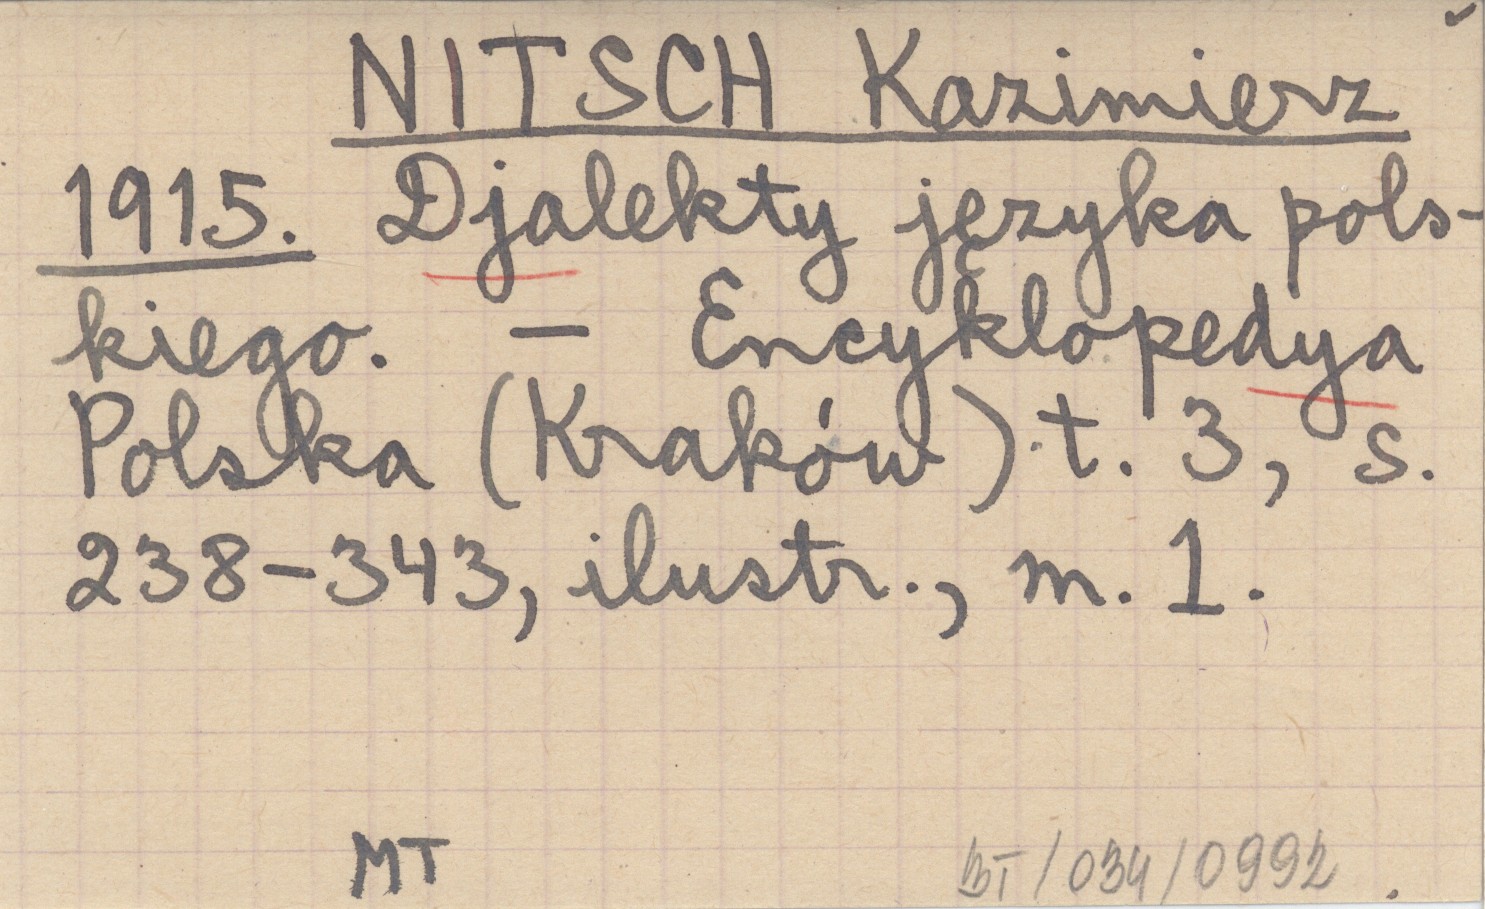 NITSCH Kazimierz
1915. Djalekty języka pols-
kiego. — Encyklopedya
Polska (Kraków) t. 3, s.
238-343, ilustr., m. 1.
MT
BT/034/0992